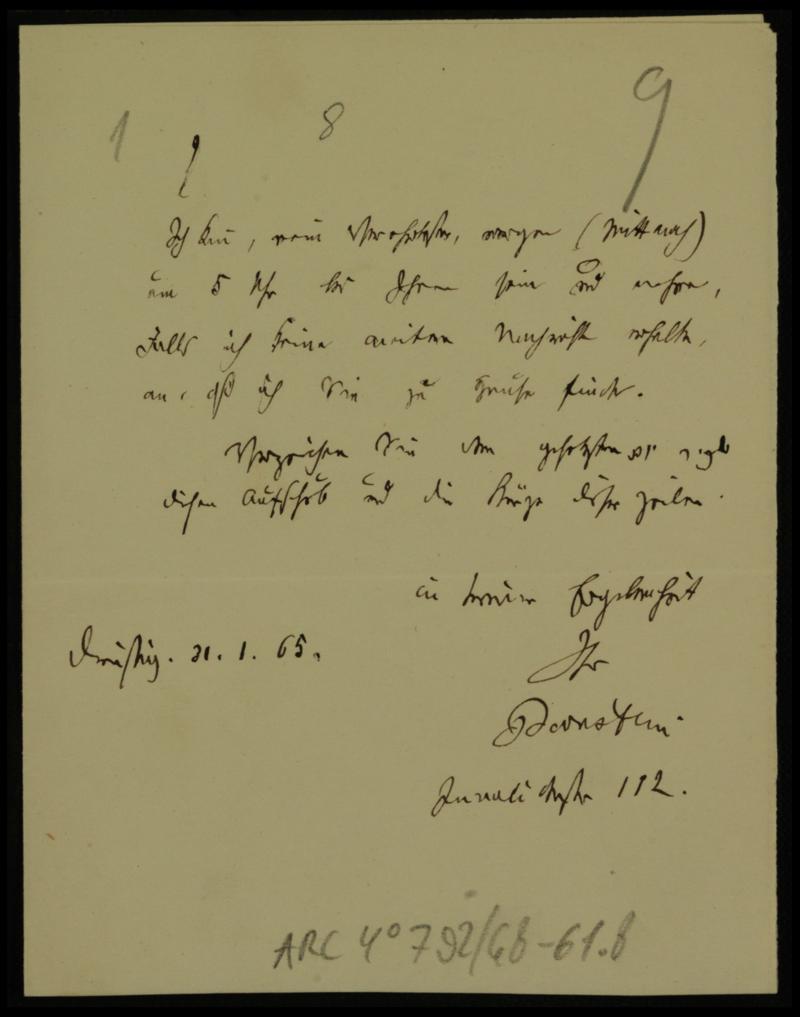 1 8 9
Ich bin, mein Verehrtester, morgen (Mittwoch)
um 5 Uhr bei Ihnen sein und nehme,
Falls ich keine weitere Nachricht erhalte,
an, daß ich Sie zu Hause finde.
Verzeihen Sie den
dichen Aufschub und die Kürze dieser Zeilen.
in treuer Ergebenheit
Dienstag. 31. 1. 65.
Ihr
Bernstein
Invalidenstr 112.
ARC 4° 792/